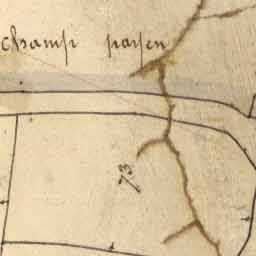 champ payen
73